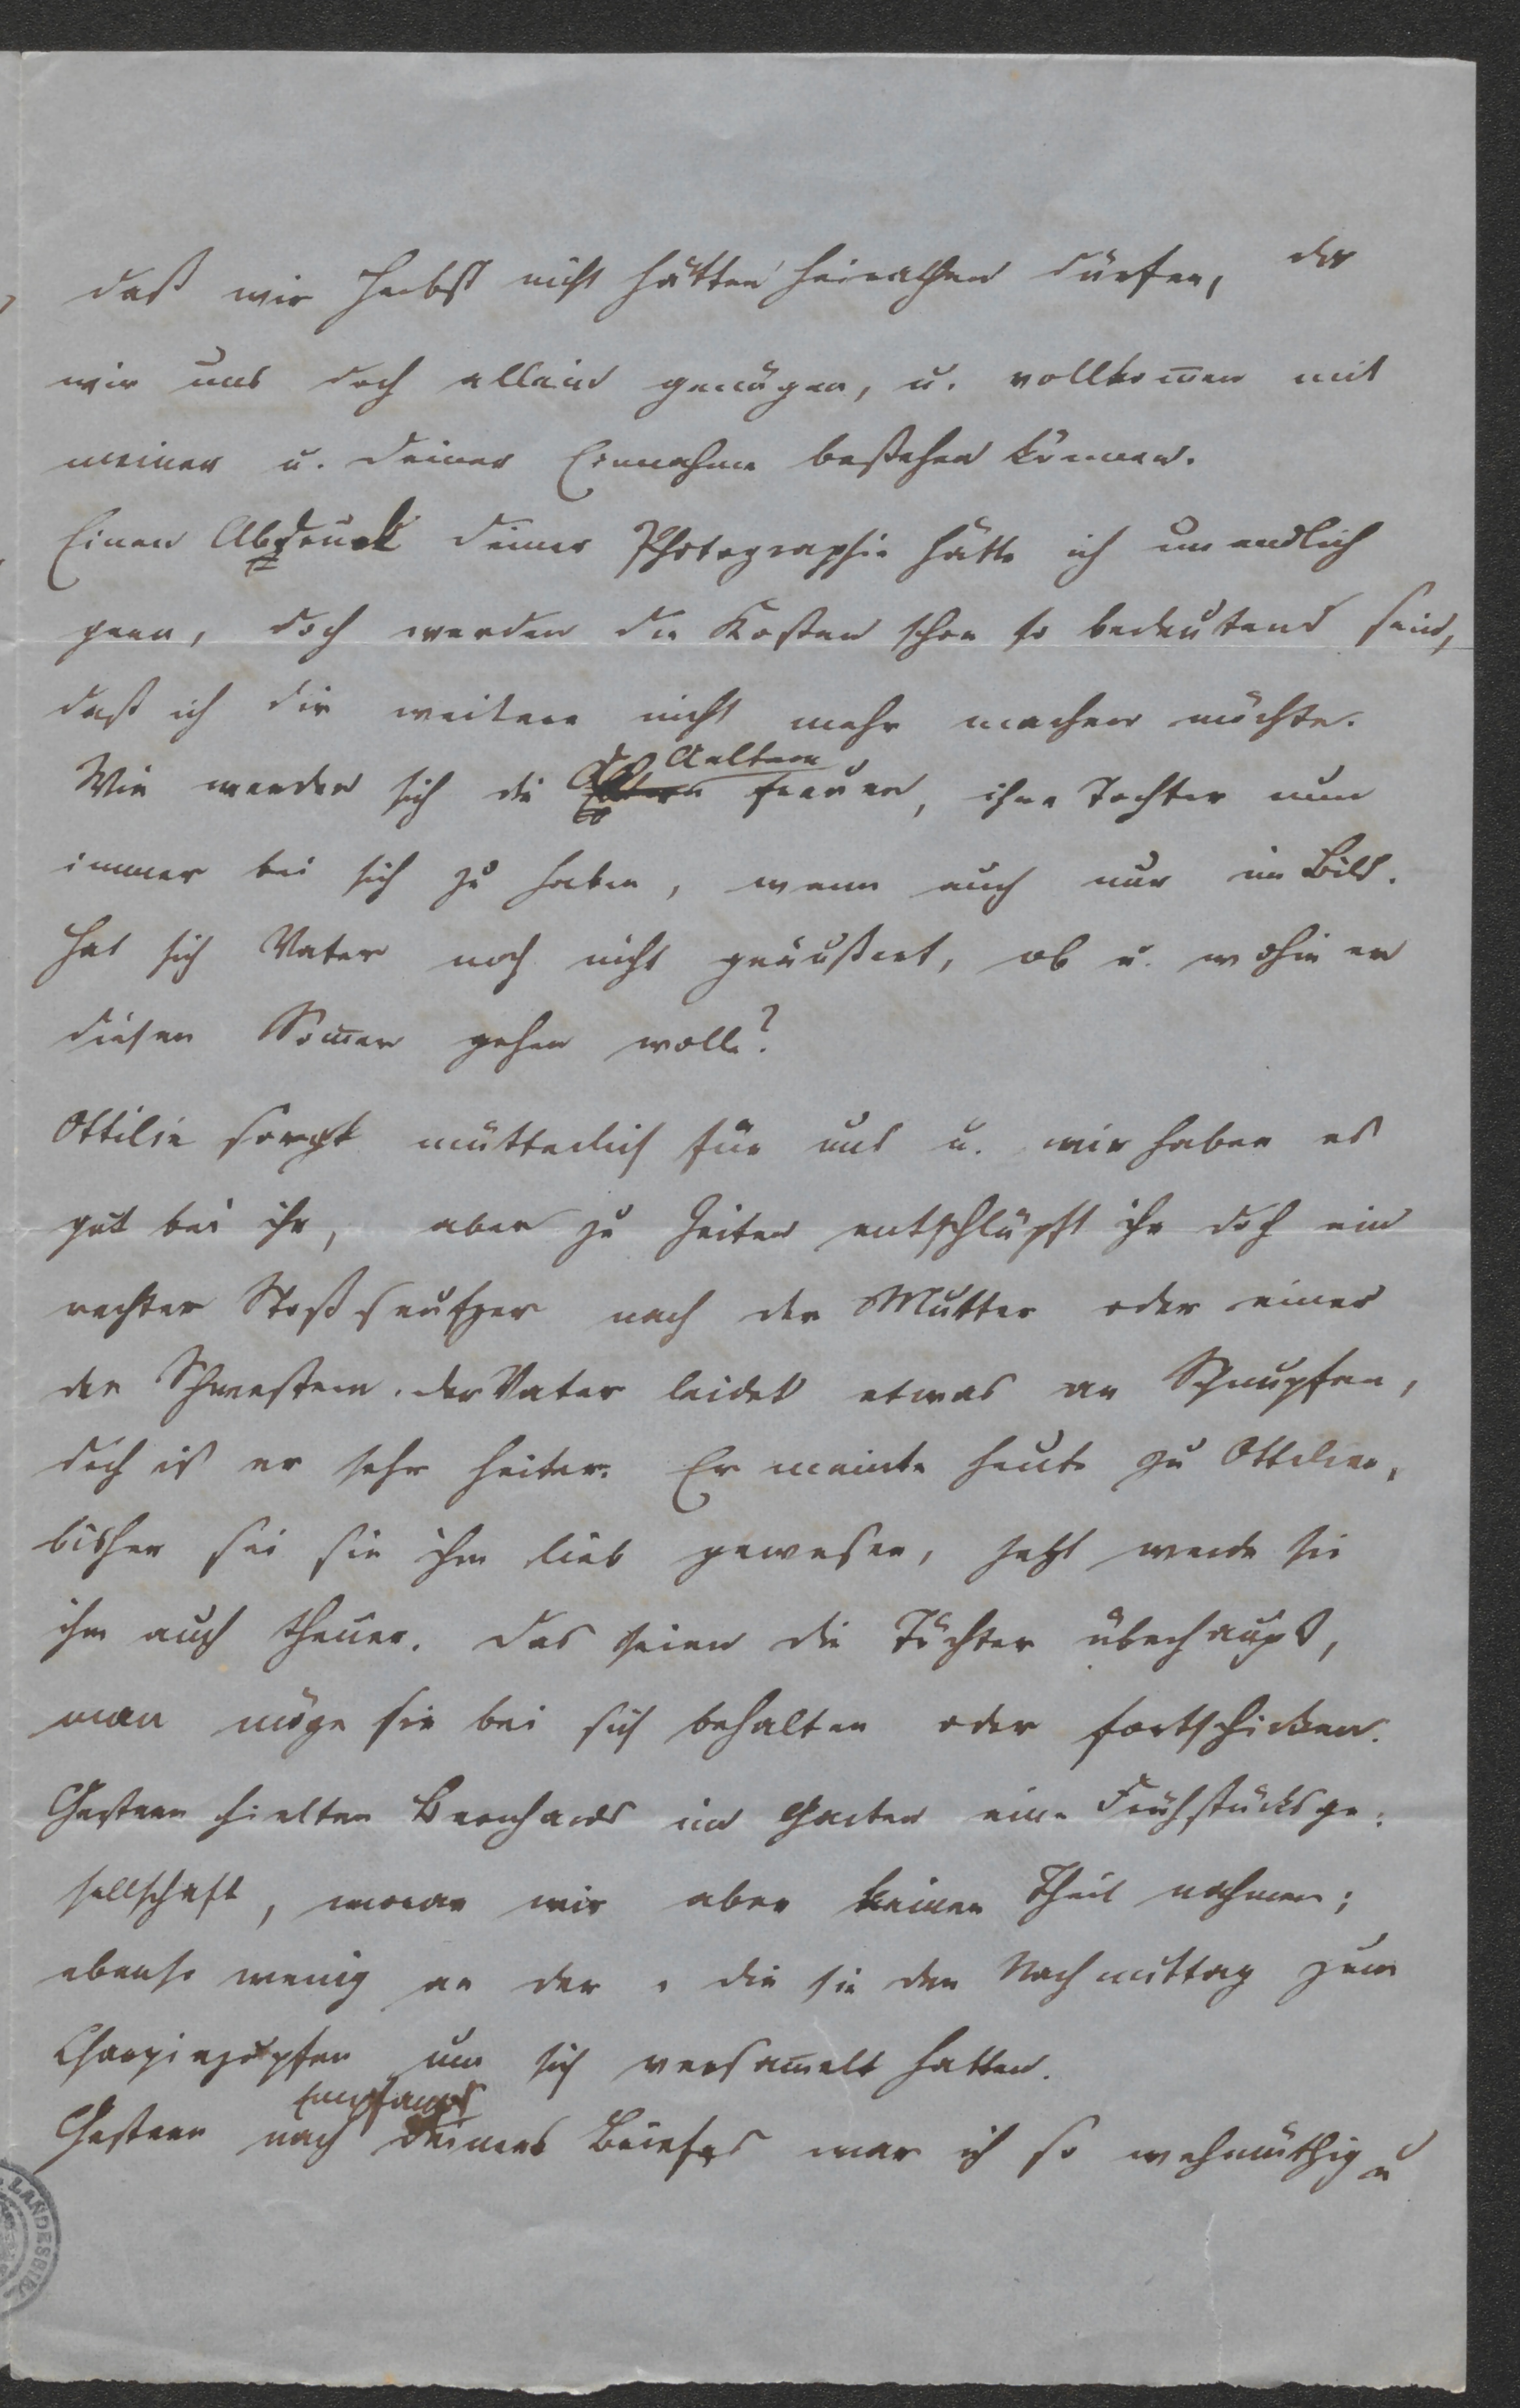 daß wir Herbst nicht hätten heirathen dürfen, da
wir uns doch allein genügen, u. vollkom̅en mit
meiner u. deiner Einnahme bestehen können.
Einen Abdruck deiner Photographie hätte ich unendlich
gern, doch werden die Kosten schon so bedeutend sein,
daß ich dir weitere nicht mehr machen möchte.
Aeltern
Wie werden sich die freuen, ihre Tochter nun
immer bei sich zu haben, wenn auch nur im Bild.
Hat sich Vater noch nicht geäußert, ob u. wohin er
diesen Som̅er gehen wolle?
Ottilie sorgt mütterlich für uns u. wir haben es
gut bei ihr, aber zu Zeiten entschlüpft ihr doch ein
rechter Stoßseufzer nach der Mutter oder einer
der Schwestern. der Vater leidet etwas an Schnupfen,
doch ist er sehr heiter. Er meinte heute zu Ottilien,
bisher sei sie ihm lieb gewesen, jetzt werde sie
ihm auch theuer. Das seien die Töchter überhaupt,
man möge sie bei sich behalten oder fortschicken.
Gestern hielten Bernhards im Garten eine Frühstücksge-
sellschaft, woran wir aber keinen Theil nahmen;
ebenso wenig an der, die sie den Nachmittag zum
Charpiezupfen um sich versam̅elt hatten.
Empfang
Gestern nach deines Briefes war ich so wehmüthig u
LANDESBIBL